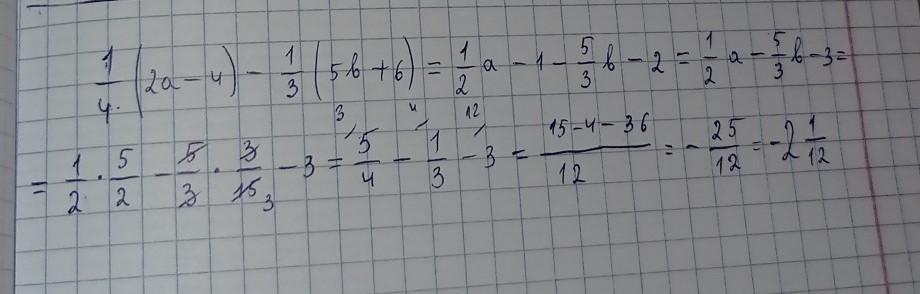 1/4 · (2a - 4) - 1/3 (5b + 6) = 1/2 a - 1 - 5/3 b - 2 = 1/2 a - 5/3 b - 3 =
3 4 12
= 1/2 · 5/2 - 5/3 · 3/15 3 - 3 = 5/4 - 1/3 - 3 = 15-4-36/12 = - 25/12 = -2 1/12